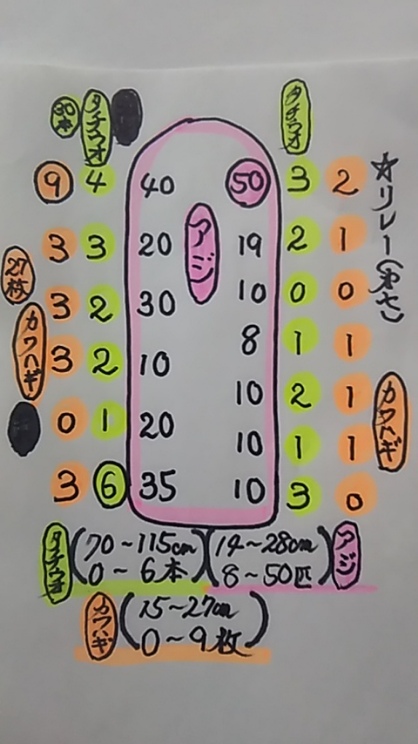 30本 タチウオ タチウオ
9 4 40 50 3 2
☆リレー(やさ)
アジ
3 3 20 19 2 1
27枚 カワハギ
3 2 30 10 0 0
3 2 10 8 1 1
カワハギ
0 1 20 10 2 1
10 1 1
3 6 35 10 3 0
タチウオ (70~115cm 0~6本)
(14~28cm 8~50匹) アジ
カワハギ (15~27cm 0~9枚)